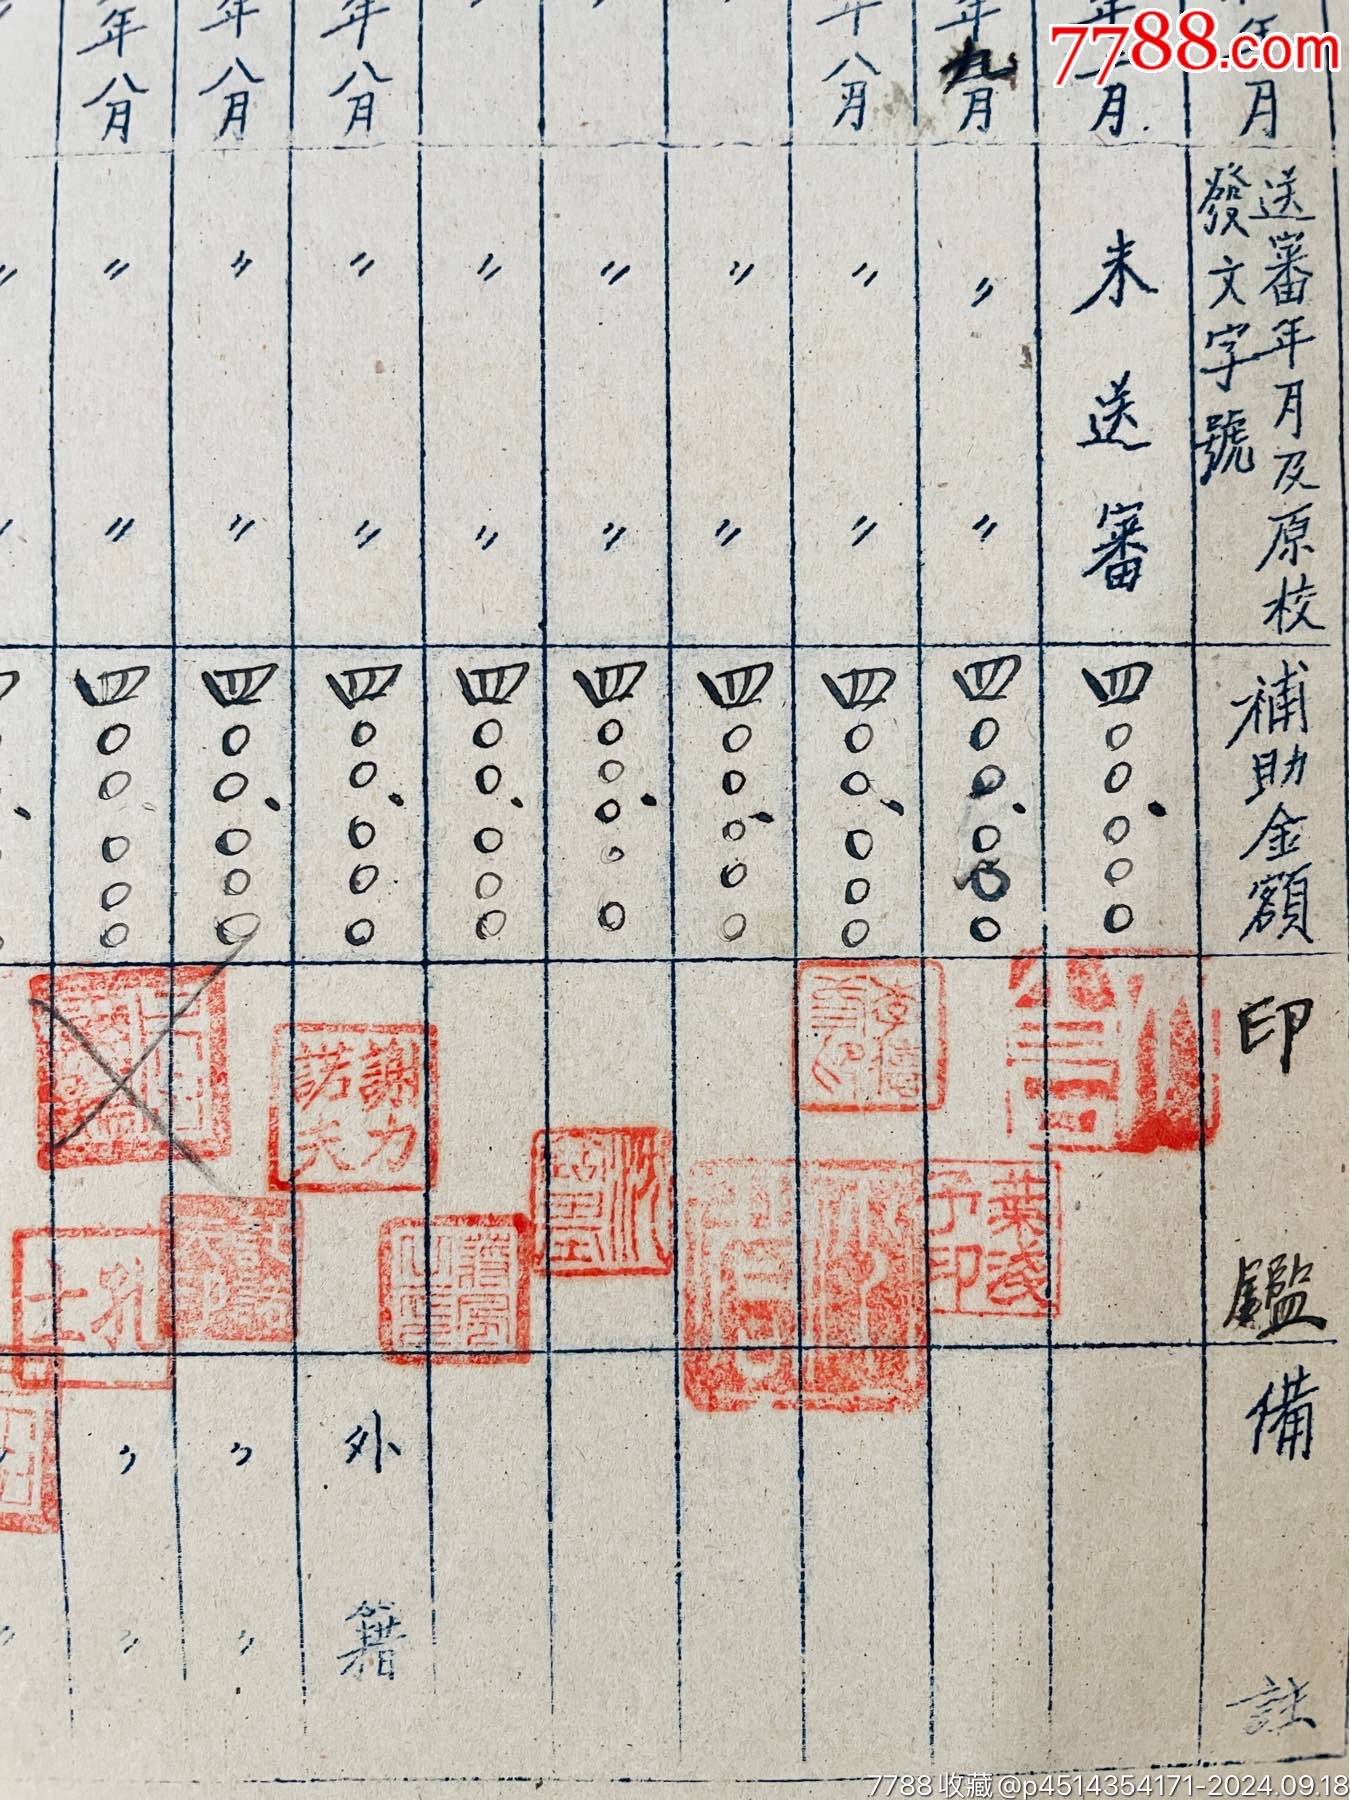 7788.com
年月
送審年月及原校
發文字號
補助金額
印鑑
備註
月
未送審
四〇〇.〇〇〇
年九月
〃〃
四〇〇.〇〇〇
葉淺予印
年八月
〃〃
四〇〇.〇〇〇
〃〃
四〇〇.〇〇
〃〃
四〇〇〇.〇〇
〃〃
四〇〇.〇〇〇
年八月
〃〃
四〇〇.〇〇〇
謝力諾夫
外籍
年八月
〃〃
四〇〇.〇〇〇
〃〃
年八月
〃〃
四〇〇.〇〇〇
孔士
〃〃
7788收藏@p4514354171-2024.09.18